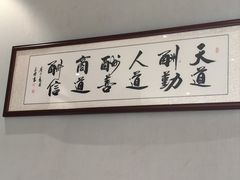 天道
酬勤
人道
酬善
商道
酬信